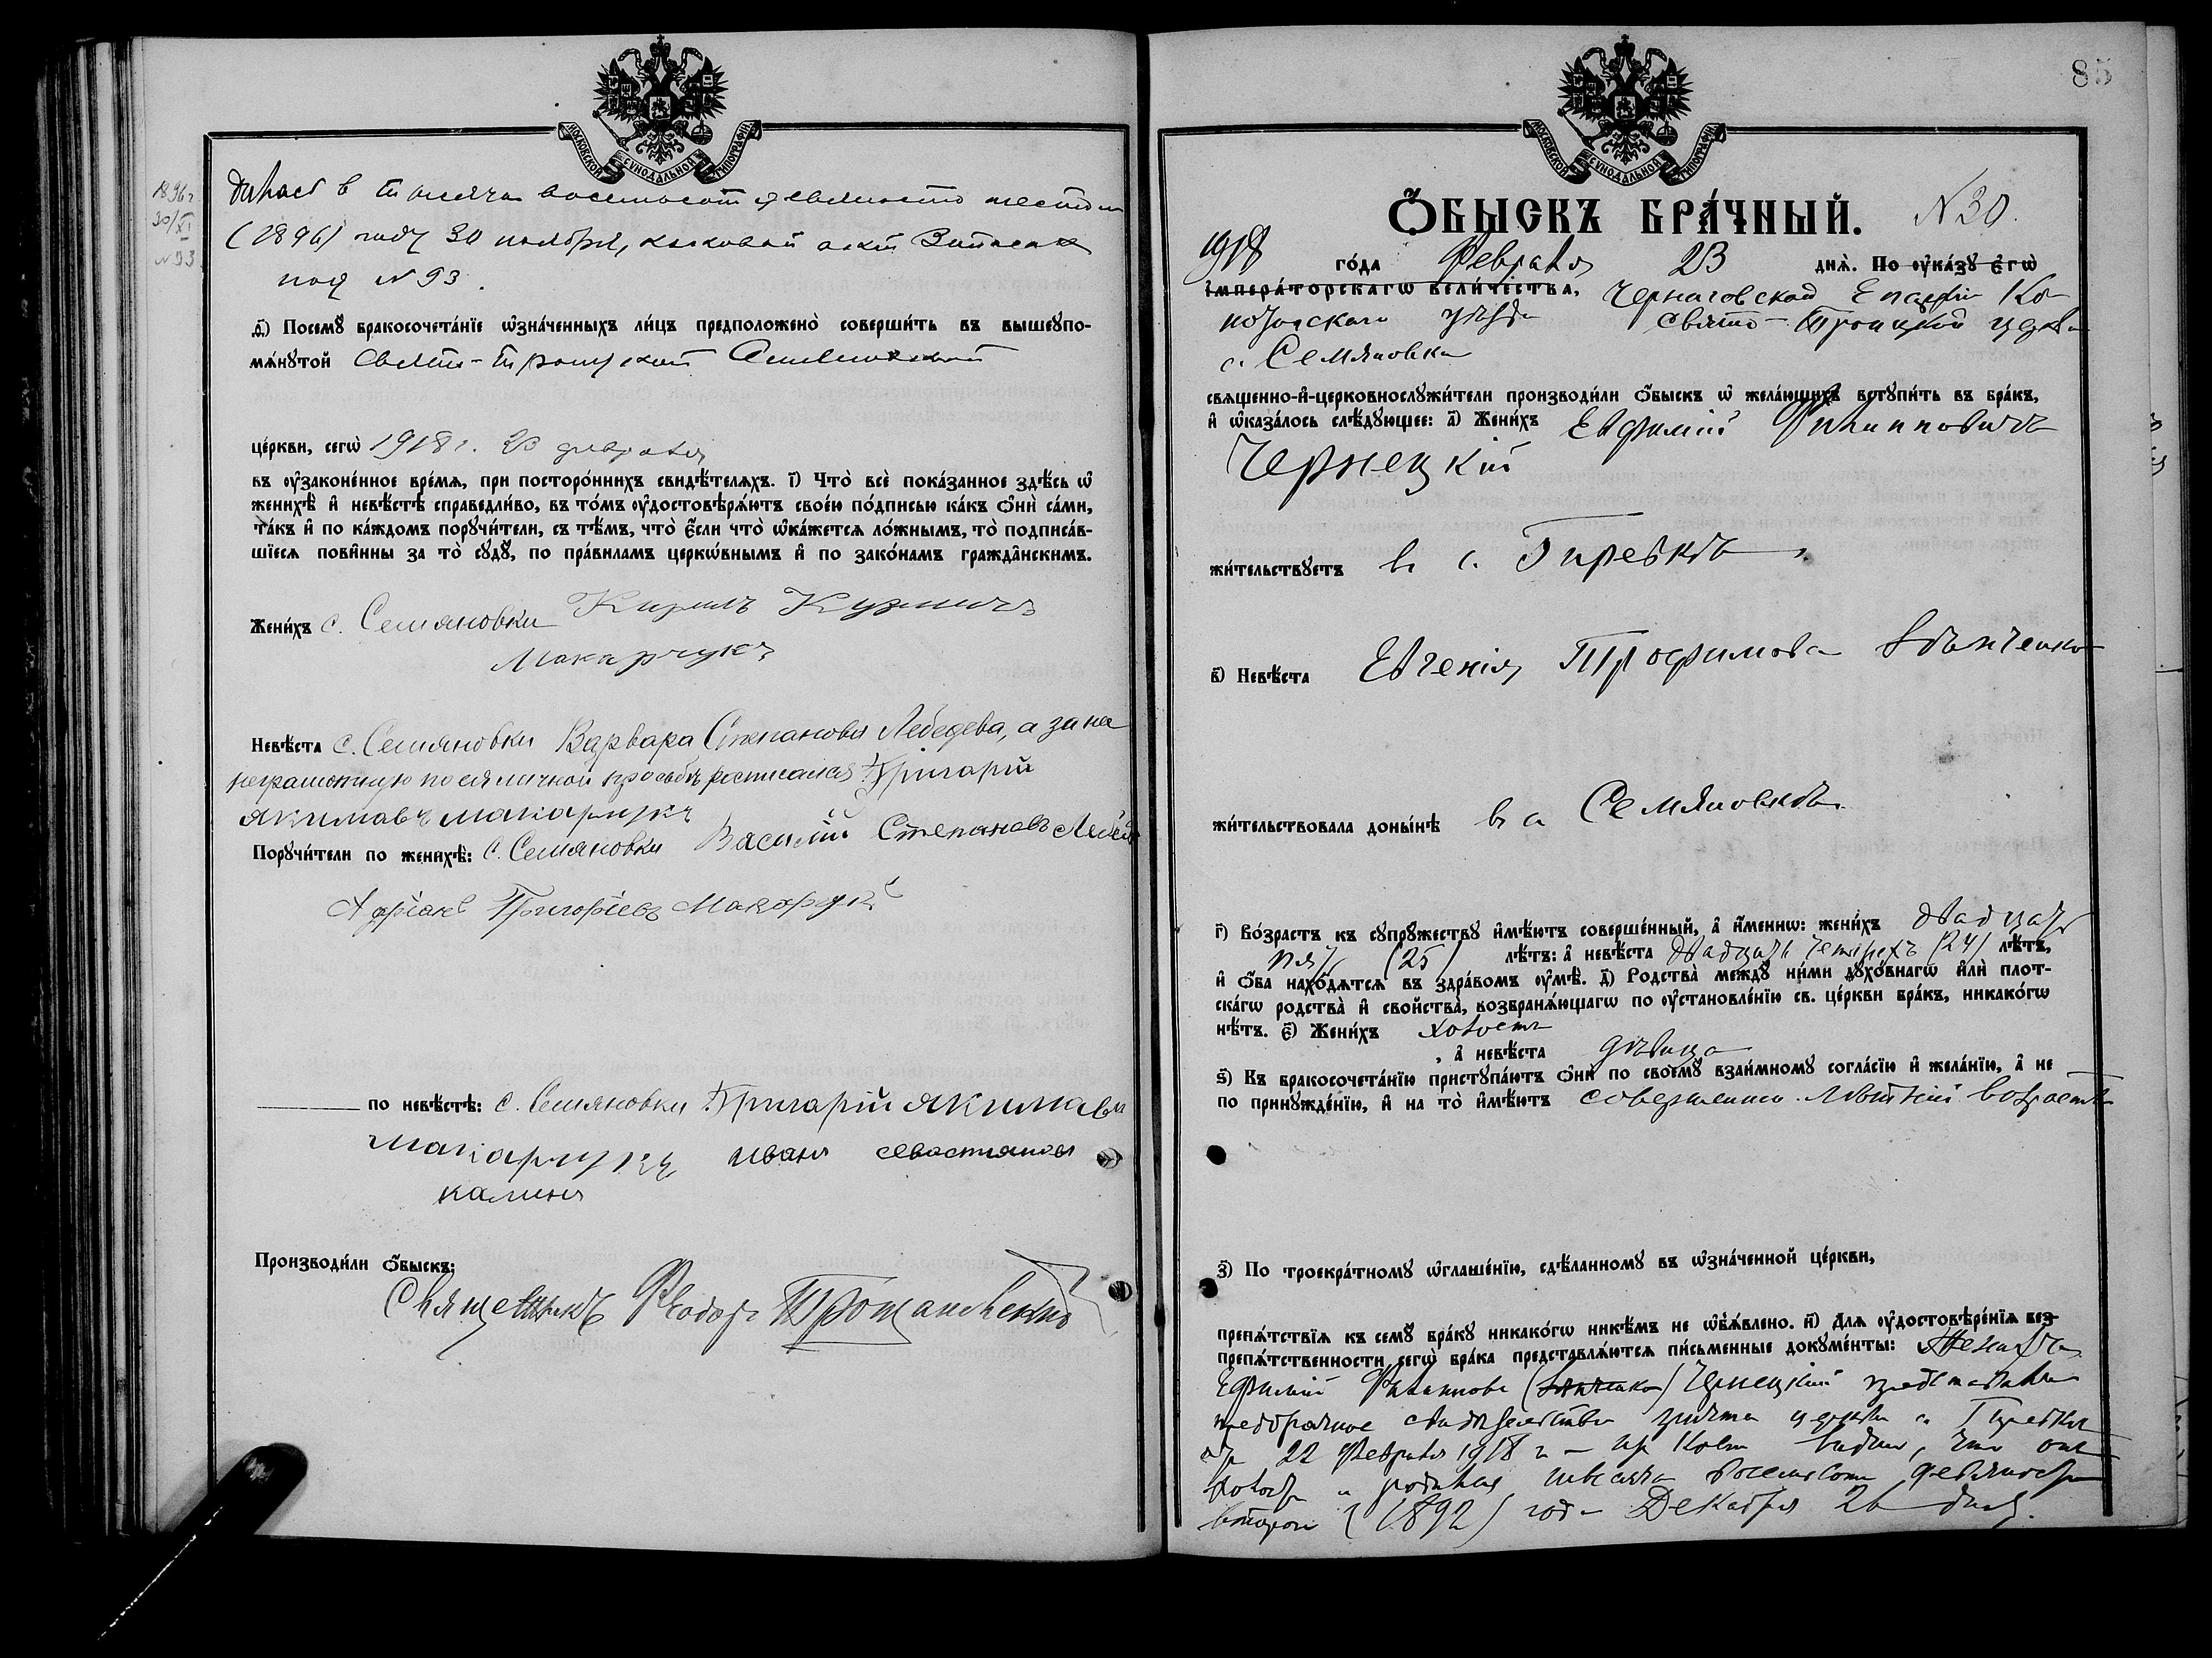 1896 г.
30/XI
N 93
МОСКОВСКОЙ СУНОДАЛЬНОЙ ТИПОГРАФІИ
дилась в тысяча восемьсот девяносто шестом
(1896) году 30 ноября, каковой акт записан
под N 93.
д҃) Посемꙋ бракосочета́нїе ѡзна́ченныхъ ли́цъ предположено̀ соверши́ть въ вышеупо-
мѧ́нꙋтой Свято-Троицкой Семяновской
це́ркви, сегѡ̀ 1918 г. 23 февраля
въ ᲂу҆зако́ненное вре́мѧ, при посторо́ннихъ свидѣ́телѧхъ. і҃) Что̀ всѐ пока́занное здѣ́сь ѡ҆
женихѣ̀ и҆ невѣ́стѣ справедли́во, въ то́мъ ᲂу҆достовѣрѧ́ютъ свое́ю по́дписью ка́къ ѻ҆нѝ са́ми,
та́къ и҆ по ка́ждомъ порꙋчи́тели, съ тѣ́мъ, что̀ є҆́сли что̀ ѡ҆ка́жетсѧ ло́жнымъ, то̀ подписа́в-
шїесѧ пови́нны за то̀ сꙋдꙋ̀, по пра́виламъ церкѡ́внымъ и҆ по зако́намъ гражда́нскимъ.
Жени́хъ с. Семяновки Кирилъ Кузмичъ
Макарчукъ
Невѣ́ста с. Семяновки Варвара Степановa Лебедева, а за нее
неграмотную по ея личной просьбѣ росписался Григарій
якимавъ макарчукъ
Порꙋчи́тели по женихѣ̀: с. Семяновки Василій Степановъ Лебед
Адріанъ Григоріевъ Макарчукъ
по невѣ́стѣ: с. Семяновки Григарій якимавъ
макарчукъ иванъ севастиановъ
калина
Производи́ли ѻ҆́быскъ:
Священникъ Ѳеодоръ
85
МОСКОВСКОЙ СУНОДАЛЬНОЙ ТИПОГРАФІИ
Ѻ҆́БЫСКЪ БРА́ЧНЫЙ. N 30.
1918 го́да Февраля 23 днѧ̀. По ᲂу҆ка́зꙋ є҆гѡ̀
і҆мпера́торскагѡ вели́чества, Черниговской Епархіи Ко-
нотопскаго уѣзда Свято-Троицкой церкви
с. Семяновки
свѧще́нно-и҆-церковнослꙋжи́тели производи́ли ѻ҆́быскъ ѡ҆ жела́ющихъ встꙋпи́ть въ бра́къ,
и҆ ѡ҆каза́лось слѣ́дꙋющее: а҃) Жени́хъ Евфимій Филипповичъ
Чернецкій
жи́тельствꙋетъ в с. Гиревкѣ
в҃) Невѣ́ста Евгенія Трофимова
жи́тельствовала доны́нѣ в с. Семяновкѣ
г҃) Во́зрастъ къ сꙋпрꙋ́жествꙋ и҆мѣ́ютъ соверше́нный, а҆ и҆́меннѡ: жени́хъ двадцать
пять (25) лѣ́тъ: а҆ невѣ́ста двадцати четырехъ (24) лѣ́тъ,
и҆ ѻ҆́ба нахо́дѧтсѧ въ здра́вомъ ᲂу҆мѣ̀. д҃) Родства̀ междꙋ̀ ни́ми дꙋхо́внагѡ и҆лѝ плот-
ска́гѡ родства̀ и҆ сво́йства, возбранѧ́ющагѡ по ᲂу҆становле́нїю св. це́ркви бра́къ, никако́гѡ
нѣ́тъ. є҃) Жени́хъ холостъ
, а҆ невѣ́ста дѣвица
ѕ҃) Къ бракосочета́нїю пристꙋпа́ютъ ѻ҆нѝ по своемꙋ̀ взаи́мномꙋ согла́сїю и҆ жела́нїю, а҆ не
по принꙋжде́нїю, и҆ на то̀ и҆мѣ́ютъ совершеннолѣтній возрастъ
з҃) По троекра́тномꙋ ѡ҆глаше́нїю, сдѣ́ланномꙋ въ ѡ҆зна́ченной це́ркви,
препѧ́тствїѧ къ семꙋ̀ бра́кꙋ никако́гѡ никѣ́мъ не ѡ҆б̾ѧ́влено. и҃) Длѧ ᲂу҆достовѣре́нїѧ без-
препѧ́тственности сегѡ̀ бра́ка представлѧ́ютсѧ пи́сьменные докꙋме́нты: Женихъ
Ефимій Филиппов Чернецкій представилъ
предбрачное свидѣтельство причта церкви с. Гиревки
от 22 Февраля 1918 г. из коего видно, что онъ
холостъ и родился тысяча восемьсот девяносто
втором (1892) года Декабря 26 дня.